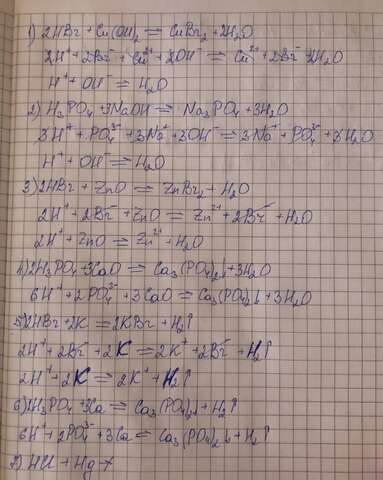 1) 2HBr + Cu(OH)₂ ⇌ CuBr₂ + 2H₂O
2H⁺ + 2Br⁻ + Cu²⁺ + 2OH⁻ ⇌ Cu²⁺ + 2Br⁻ + 2H₂O
H⁺ + OH⁻ ⇌ H₂O
2) H₃PO₄ + 3NaOH ⇌ Na₃PO₄ + 3H₂O
3H⁺ + PO₄³⁻ + 3Na⁺ + 3OH⁻ ⇌ 3Na⁺ + PO₄³⁻ + 3H₂O
H⁺ + OH⁻ ⇌ H₂O
3) 2HBr + ZnO ⇌ ZnBr₂ + H₂O
2H⁺ + 2Br⁻ + ZnO ⇌ Zn²⁺ + 2Br⁻ + H₂O
2H⁺ + ZnO ⇌ Zn²⁺ + H₂O
4) 2H₃PO₄ + 3CaO ⇌ Ca₃(PO₄)₂↓ + 3H₂O
6H⁺ + 2PO₄³⁻ + 3CaO ⇌ Ca₃(PO₄)₂↓ + 3H₂O
5) 2HBr + 2K ⇌ 2KBr + H₂↑
2H⁺ + 2Br⁻ + 2K ⇌ 2K⁺ + 2Br⁻ + H₂↑
2H⁺ + 2K ⇌ 2K⁺ + H₂↑
6) 2H₃PO₄ + 3Ca ⇌ Ca₃(PO₄)₂↓ + H₂↑
6H⁺ + 2PO₄³⁻ + 3Ca ⇌ Ca₃(PO₄)₂↓ + H₂↑
7) HCl + Hg ↛